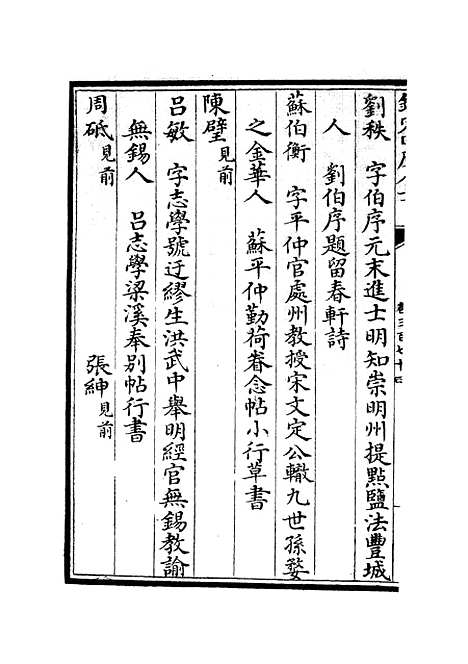 劉秩　字伯序元末進士明知崇明州提點鹽法豐城
人　劉伯序題留春軒詩
蘇伯衡　字平仲官處州教授宋文定公轍九世孫婺
之金華人　蘇平仲勤荷眷念帖小行草書
陳璧見前
呂敏　字志學號迂繆生洪武中舉明經官無錫教諭
無錫人　呂志學梁溪奉别帖行書
周砥見前　張紳見前